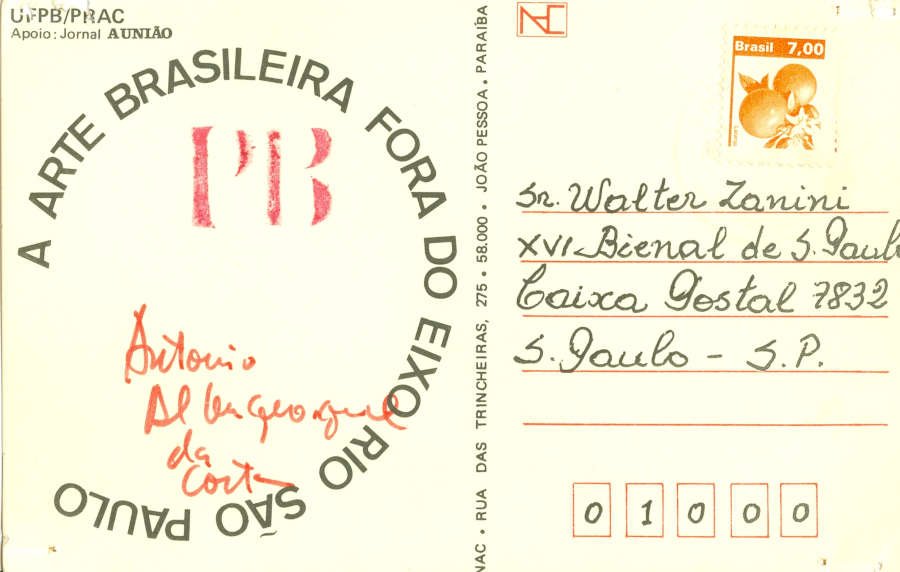 UFPB/PRAC
Apoio: Jornal A UNIÃO
A ARTE BRASILEIRA FORA DO EIXO RIO SÃO PAULO
PB
Antonio
Albuquerque
da
Costa
NAC • RUA DAS TRINCHEIRAS, 275 • 58.000 • JOÃO PESSOA • PARAÍBA
Brasil 7,00
Sr. Walter Zanini
XVI Bienal de S. Paulo
Caixa Postal 7832
S. Paulo - S.P.
0 1 0 0 0